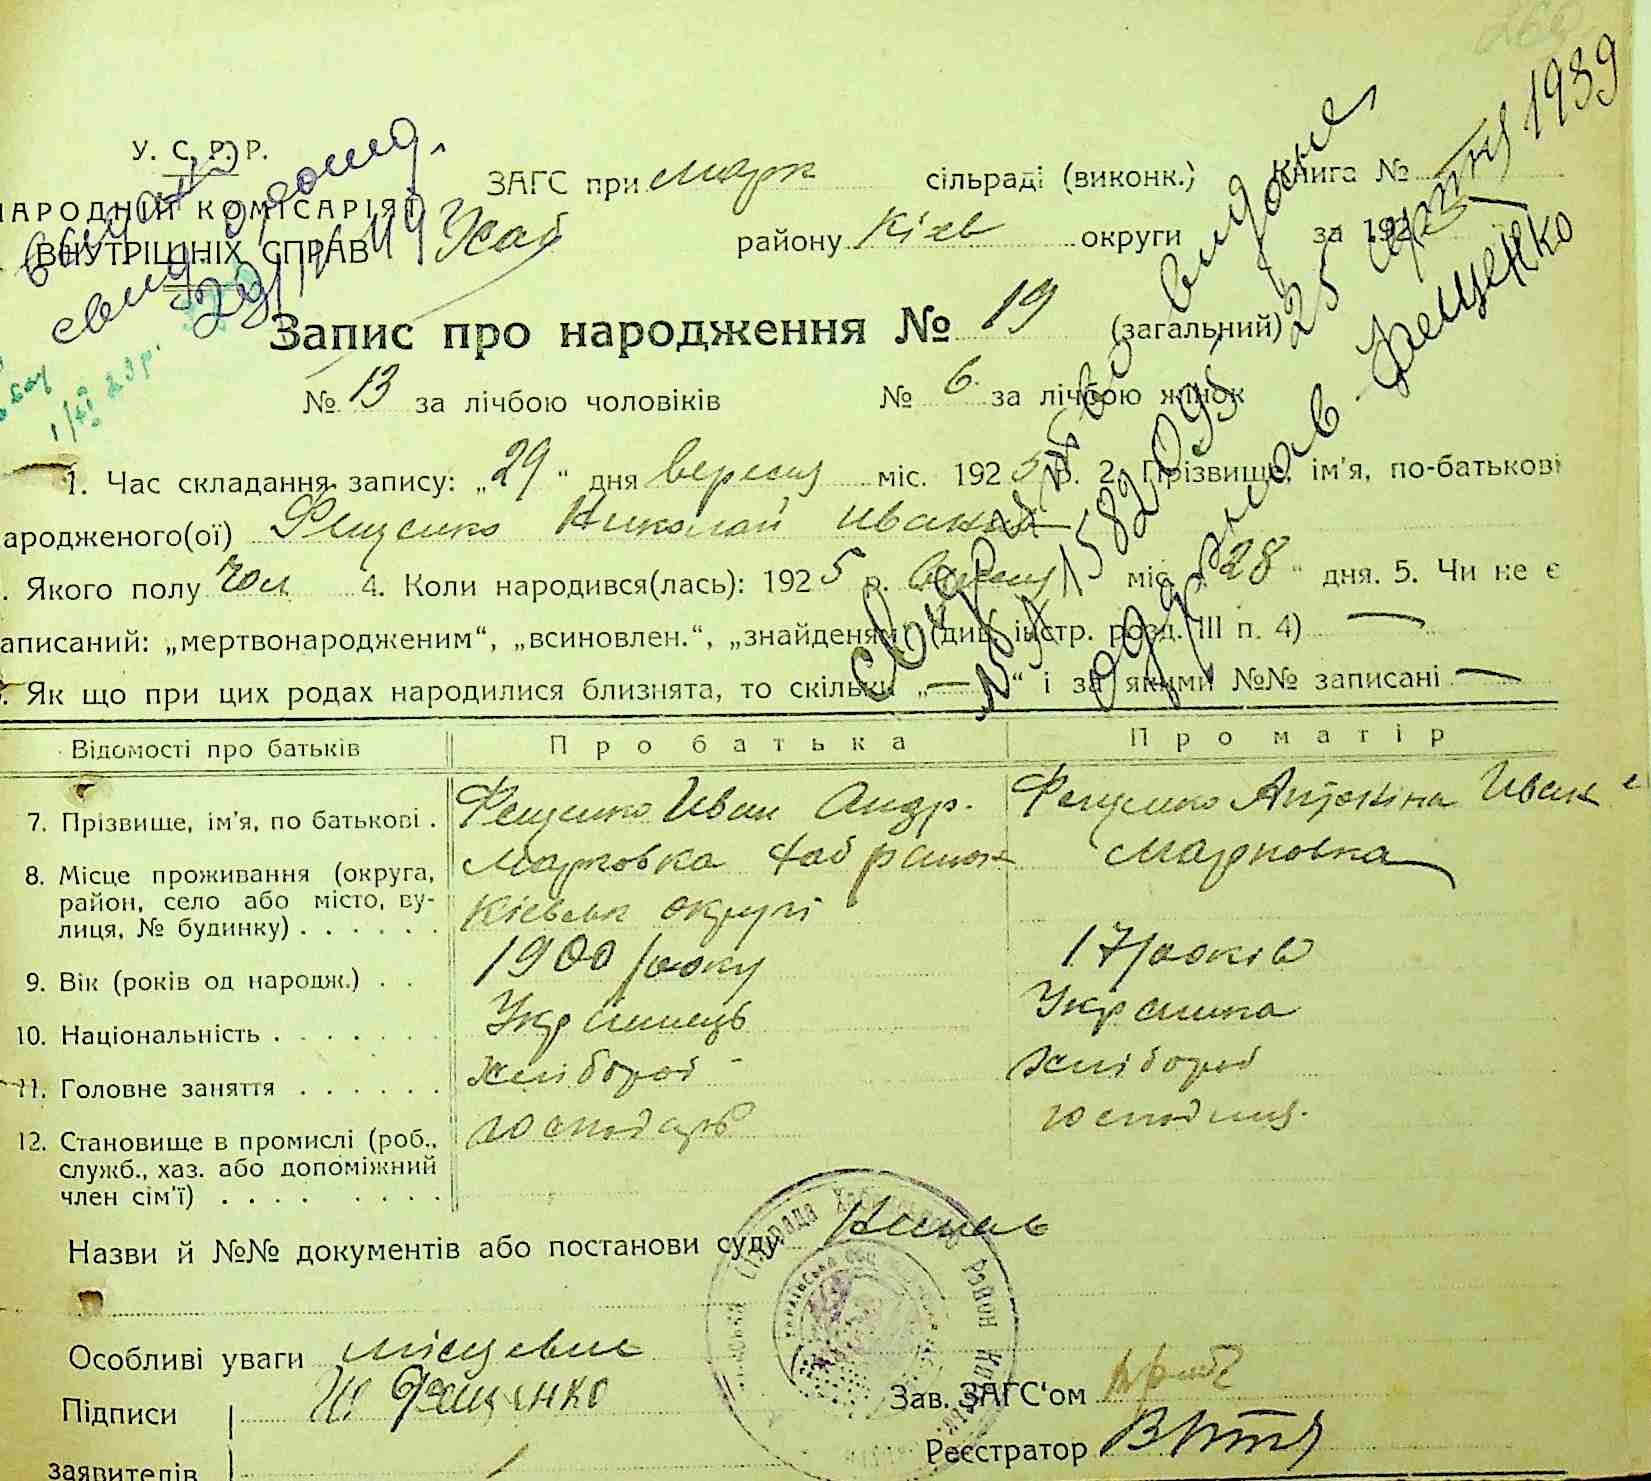 У. С. Р. Р.
НАРОДНІЙ КОМІСАРІЯТ
ВНУТРІШНІХ СПРАВ
29/
ЗАГС при Марк сільраді (виконк.) Книга №
Хаб району Київ округи за 192
Запис про народження № 19 (загальний)
№ 13 за лічбою чоловіків № 6 за лічбою жінок
Свидоцтво видоне
№ 1582095 25 1939
одержав Фещенко
1. Час складання запису: „29“ дня вересня міс. 1925 р. 2. Прізвище, ім'я, по-батькові
ародженого(ої) Фещенко Николай Иванов
. Якого полу чол 4. Коли народився(лась): 1925 р. вересня міс. „28“ дня. 5. Чи не є
аписаний: „мертвонародженим“, „всиновлен.“, „знайденям“ (див. інстр. розд. III п. 4) —
. Як що при цих родах народилися близнята, то скільки „—“ і за якими №№ записані —
Відомості про батьків Про батька Про матір
7. Прізвище, ім'я, по батькові . Фещенко Иван Андр. Фещенко Антоніна Иван
8. Місце проживання (округа, район, село або місто, вулиця, № будинку) . . . . . . Марковка Хаб район Марковка
Київськ округі
9. Вік (років од народж.) . . 1900 року 17 років
10. Національність . . . . . . . Українець Українка
11. Головне заняття . . . . . . хлібороб хлібороб
12. Становище в промислі (роб., служб., хаз. або допоміжний член сім'ї) . . . . . . . . господарь господиня
Назви й №№ документів або постанови суду Немає
Сільрада Район
Особливі уваги місцевие
Підписи Фещенко
заявителів
Зав. ЗАГС'ом
Реєстратор